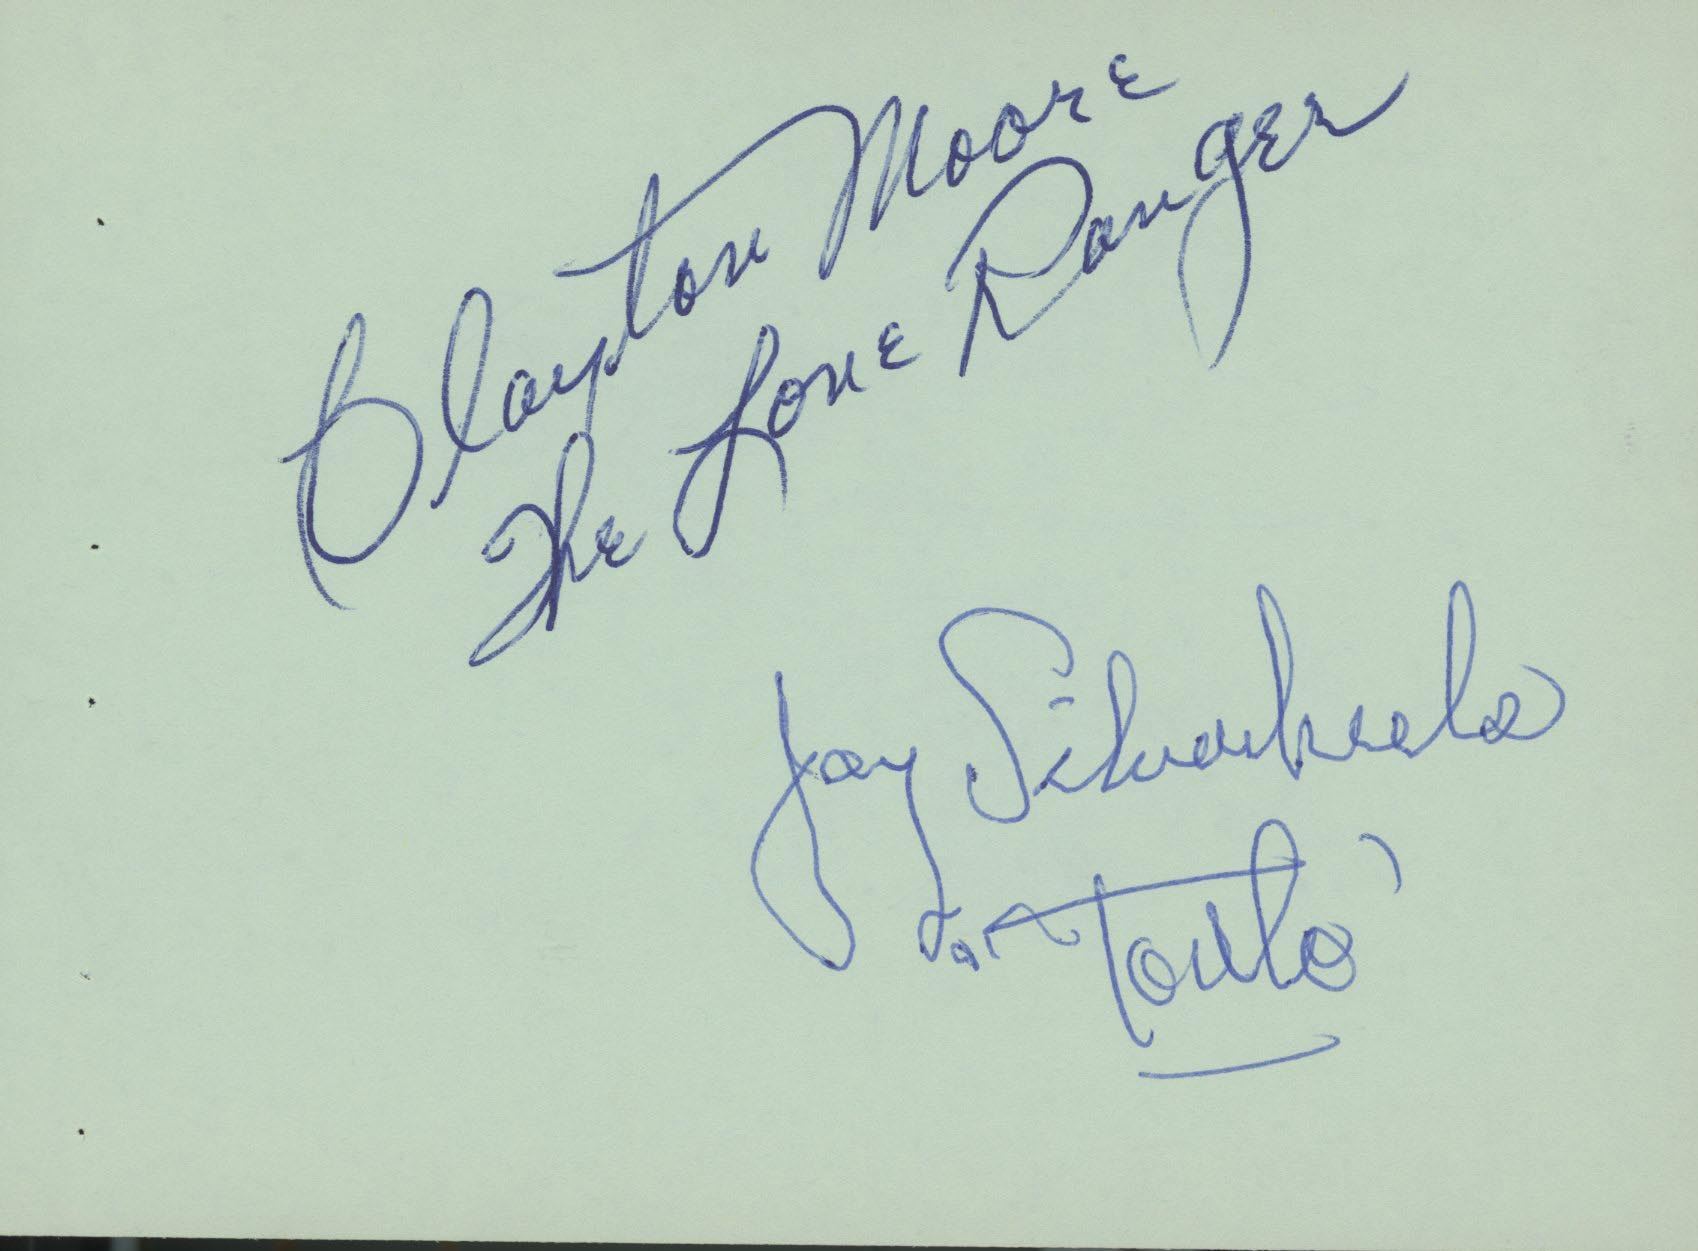 Clayton Moore
The Lone Ranger
Jay Silverheels
"Tonto"